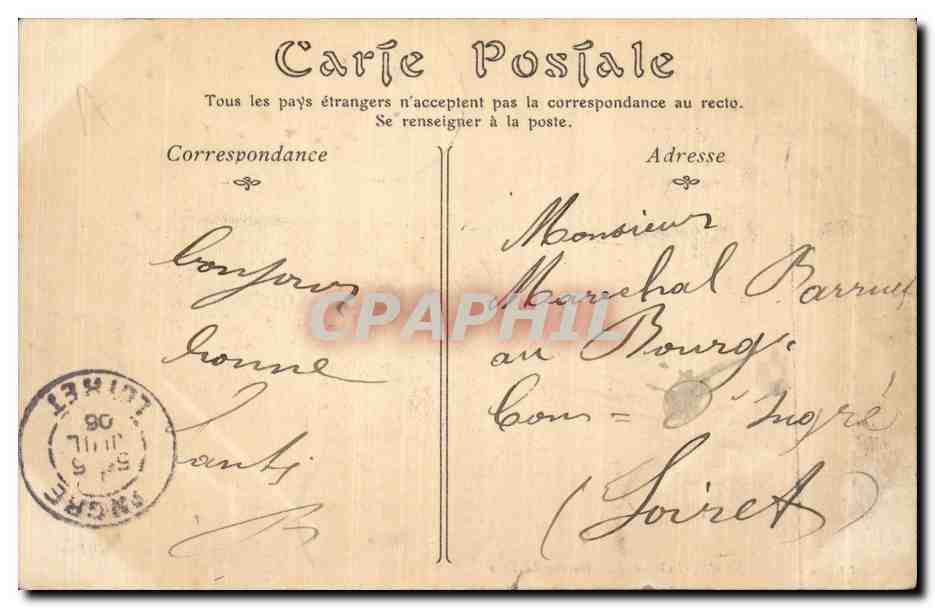 Carte Postale
Tous les pays étrangers n'acceptent pas la correspondance au recto.
Se renseigner à la poste.
Correspondance
Adresse
bonjour
bonne
Santé
B
Monsieur
Marechal Barruet
au Bourg.
Com = D'Ingré
(Loiret)
CPAPHIL
INGRE
5
JUIL
06
LOIRET